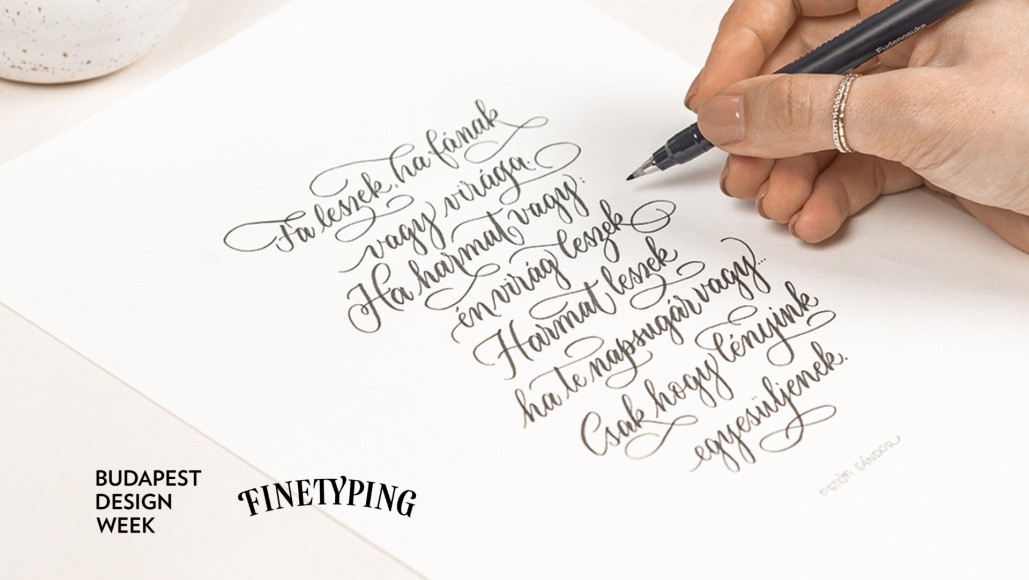 Fa leszek, ha fának
vagy virága.
Ha harmat vagy:
én virág leszek
Harmat leszek
ha te napsugár vagy...
Csak hogy lényink
egyesüljenek.
PETŐFI SÁNDOR
Fudenosuke
BUDAPEST
DESIGN
WEEK
FINETYPING